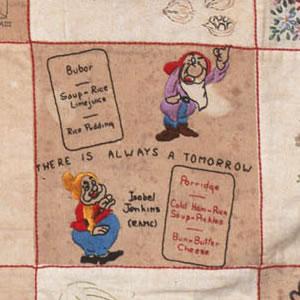 Bubor
Soup-Rice
Limejuice
Rice Pudding
THERE IS ALWAYS A TOMORROW
Isobel
Jenkins
(RAMC)
Porridge
Cold Ham-Rice
Soup-Pickles
Bun-Butter
Cheese